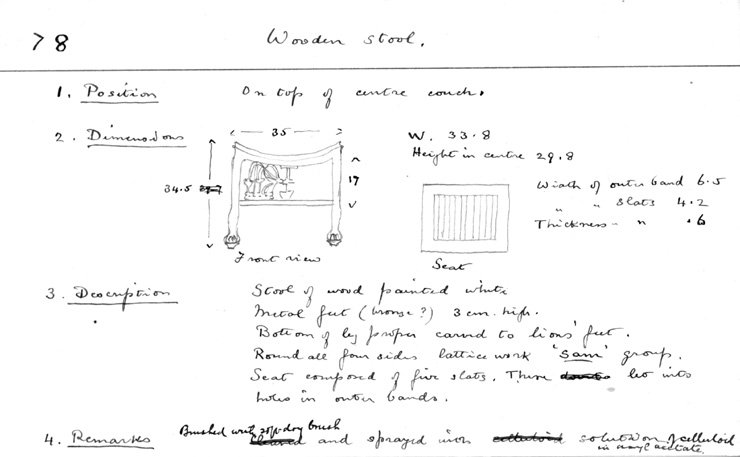 78 Wooden stool.
1. Position On top of centre couch.
2. Dimensions 35 W. 33.8
Height in centre 29.8
34.5 17 Width of outer band 6.5
" " slats 4.2
Thickness " " .6
Front view Seat
3. Description Stool of wood painted white
Metal feet (bronze?) 3 cm. high.
Bottom of leg proper carved to lions' feet.
Round all four sides lattice work 'Sam' group.
Seat composed of five slats. These let into
holes in outer bands.
Brushed with dry brush
4. Remarks and sprayed with solution of celluloid
in amyl acetate.